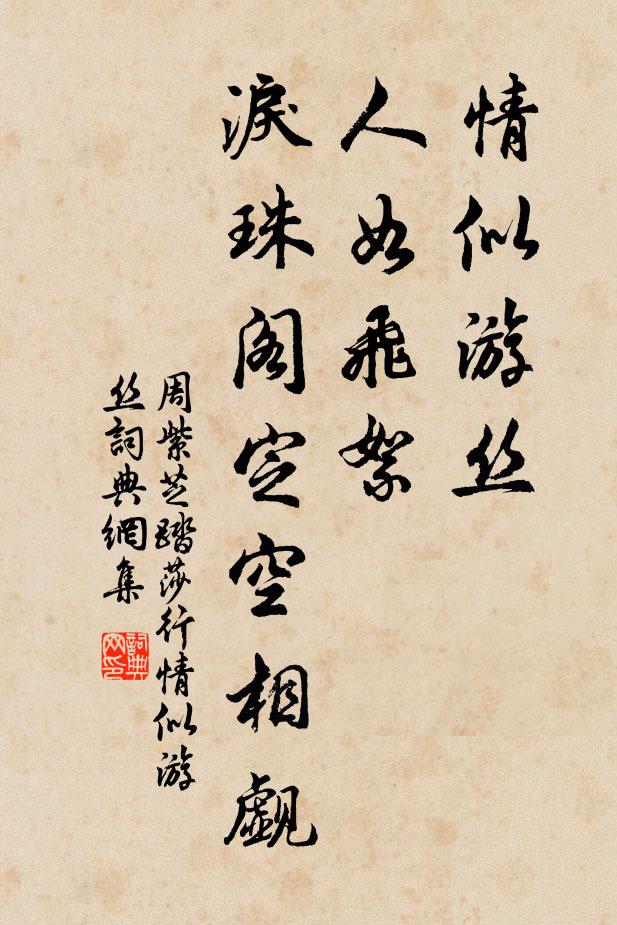 情似游丝
人如飞絮
淚珠阁定空相觑
周紫芝踏莎行情似游
丝詞典網集
詞典网印